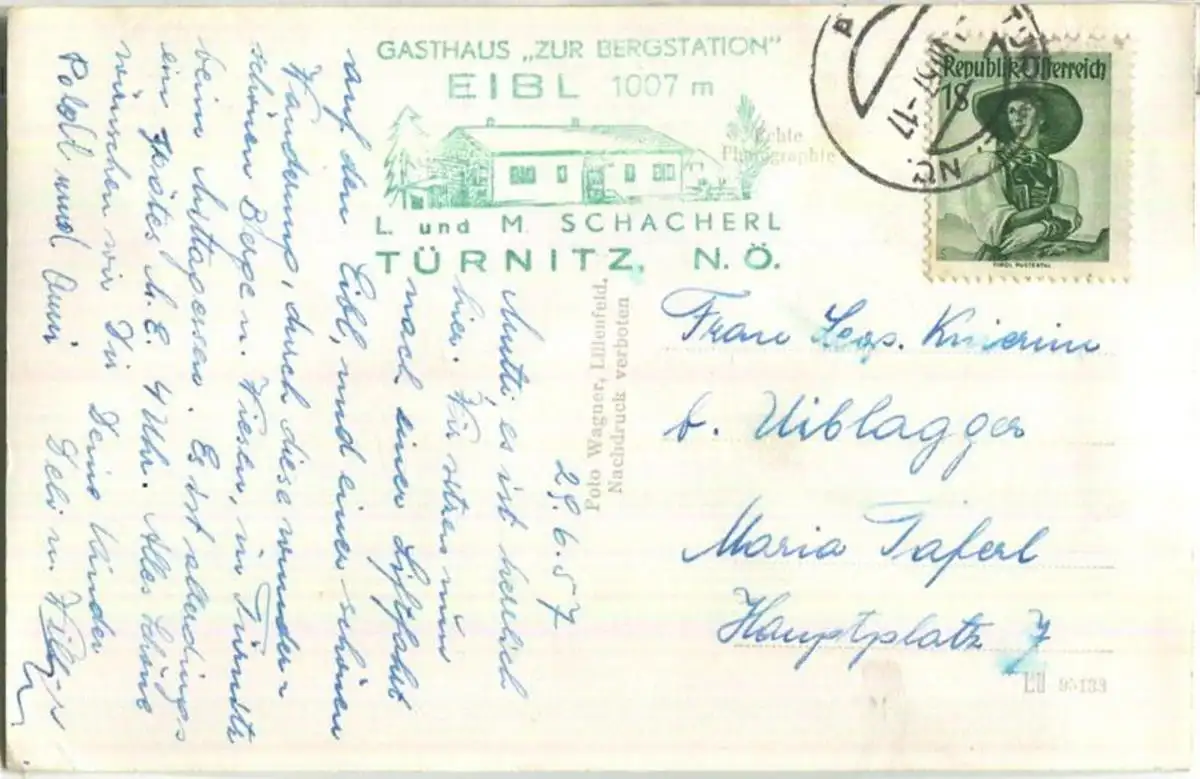 GASTHAUS „ZUR BERGSTATION"
EIBL 1007 m
L. und M. SCHACHERL
TÜRNITZ, N. Ö.
Echte
Photographie
Republik Österreich
18
TIROL PUSTERTAL
Foto Wagner, Lilienfeld.
Nachdruck verboten
29.6.57
Mutti, es ist herrlich
hier. Wir sitzen nun
nach einer Liftfahrt
auf den Eibl, und einer schönen
Wanderung, durch diese wunder-
schönen Berge u. Wiesen, in Türnitz
beim Mittagessen. Es ist allerdings
ein spätes M. E. 4 Uhr. Alles Schöne
wünschen wir Dir Deine Kinder
Poldl und Anni
Frau
b. Uiblagger
Maria Taferl
Hauptplatz 7
95133